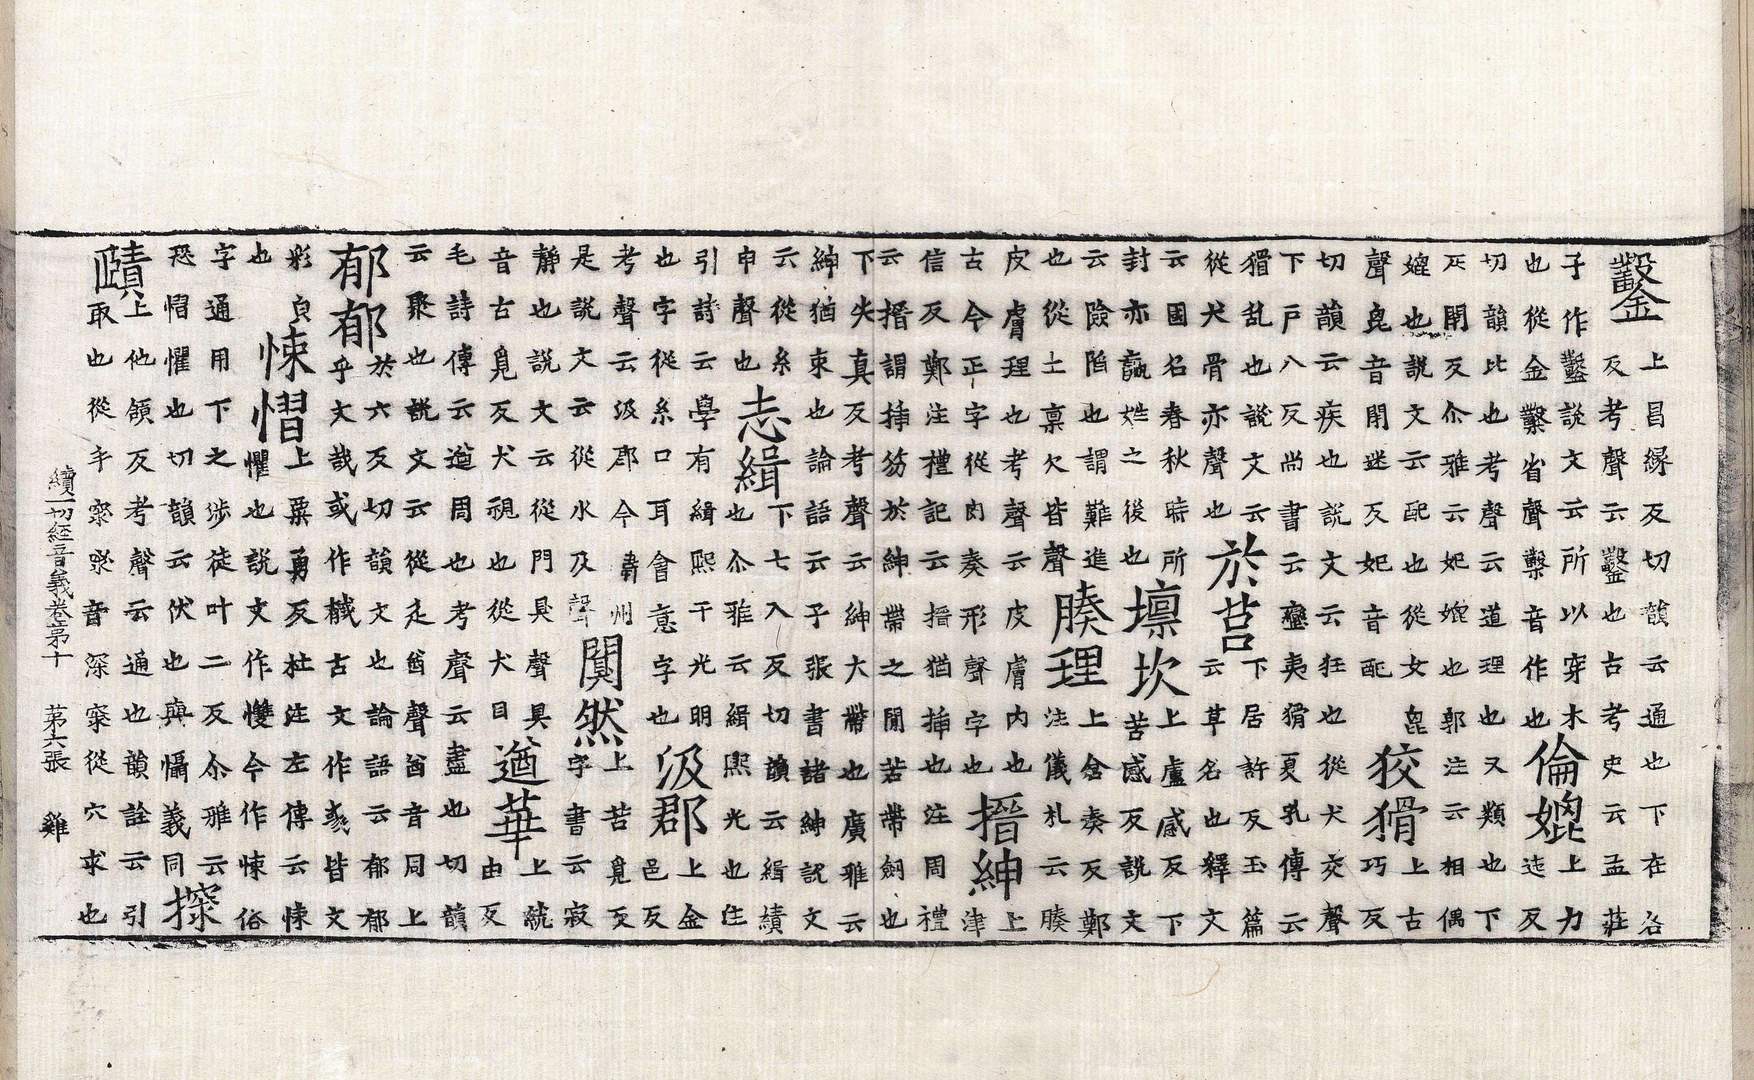 鑿
上昌緣反切韻云通也下在各
反考聲云鑿也古考史云孟莊
子作鑿說文云所以穿木
也從金鑿省聲鑿音作也
倫媲
上力
迮反
切韻比也考聲云道理也又類也下
疋閉反尒雅云妃媲也郭注云相偶
媲也說文云配也從女毘
聲毘音閉迷反妃音配
狡猾
上古
巧反
切韻云疾也說文云狂也從犬交聲
下戶八反尚書云蠻夷猾夏孔傳云
猾乱也說文云
從犬骨亦聲也
於莒
下居許反玉篇
云草名也釋文
云國名春秋時所
封亦嬴姓之後也
壈坎
上盧感反下
苦感反說文
云險陷也謂難進
也從土稟欠皆聲
腠理
上倉奏反鄭
注儀札云腠
皮膚理也考聲云皮膚內也
古今正字從肉奏形聲字也
搢紳
上
津
信反鄭注禮記云搢猶揷也注周禮
云搢謂揷笏於紳帶之閒若帶劒也
下失真反考聲云紳大帶也廣雅云
紳猶束也論語云子張書諸紳說文
云從糸
申聲也
志緝
下七入反切韻云緝績
也尒雅云緝熙光也注
引詩云學有緝熙于光明
也字從糸口耳會意字也
汲郡
上金
邑反
考聲云汲郡今衛州
是說文云從水及聲
闃然
上苦覓反
字書云寂
靜也說文云從門狊聲狊
音古覓反犬視也從犬目
遒華
上就
由反
毛詩傳云遒周也考聲云盡也切韻
云聚也說文云從辵酋聲酋音同上
郁郁
於六反切韻文也論語云郁郁
乎文哉或作戫古文作彧皆文
彩皃
也
悚慴
上粟勇反杜注左傳云悚
懼也說文作㩳今作悚俗
字通用下之涉徒叶二反尒雅云
恐慴懼也切韻云伏也與懾義同
探
賾
上他領反考聲云通也韻詮云引
取也從手罙罙音深罙從穴求也
續一切經音義卷第十 第六張 雞